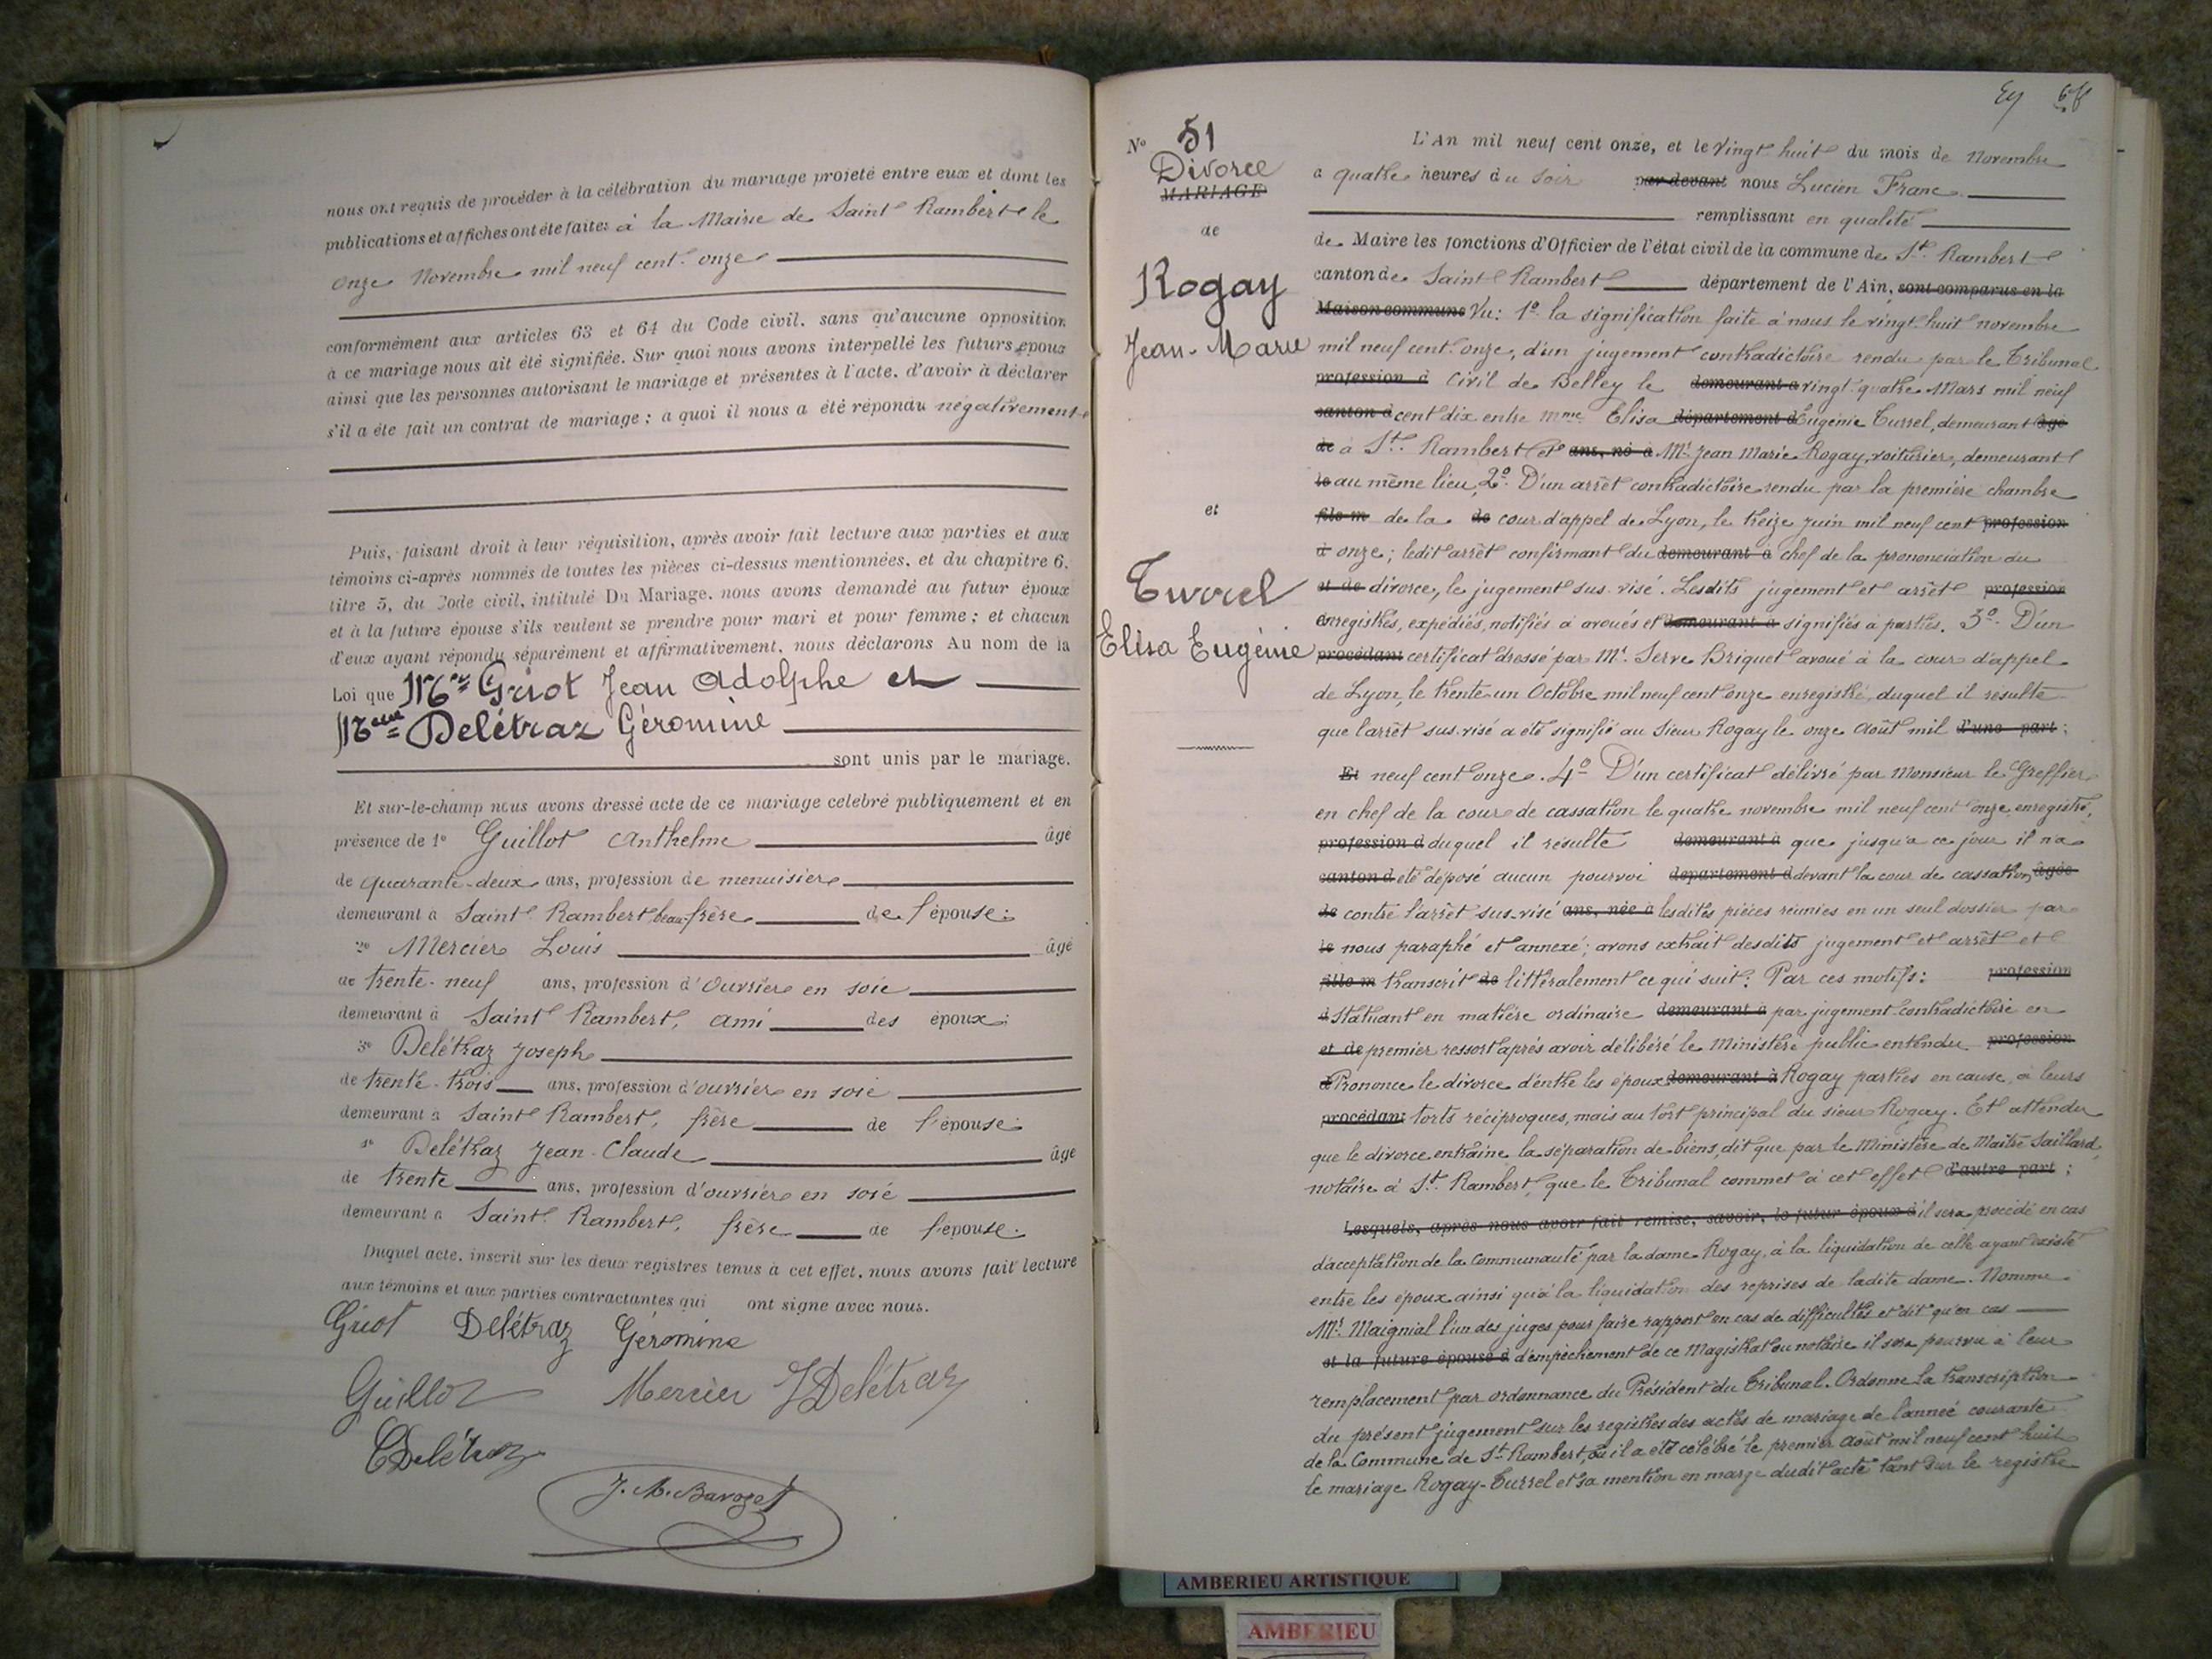 nous ont requis de procéder à la célébration du mariage projeté entre eux et dont les
publications et affiches ont été faites à la Mairie de Saint Rambert le
onze Novembre mil neuf cent onze
conformément aux articles 63 et 64 du Code civil, sans qu'aucune opposition
à ce mariage nous ait été signifiée. Sur quoi nous avons interpellé les futurs époux
ainsi que les personnes autorisant le mariage et présentes à l'acte, d'avoir à déclarer
s'il a été fait un contrat de mariage ; a quoi il nous a été répondu négativement
Puis, faisant droit à leur réquisition, après avoir fait lecture aux parties et aux
témoins ci-après nommés de toutes les pièces ci-dessus mentionnées, et du chapitre 6,
titre 5, du Code civil, intitulé Du Mariage, nous avons demandé au futur époux
et à la future épouse s'ils veulent se prendre pour mari et pour femme ; et chacun
d'eux ayant répondu séparément et affirmativement, nous déclarons Au nom de la
Loi que Mr Griot Jean Adolphe et
Melle Delétraz Géromine
sont unis par le mariage.
Et sur-le-champ nous avons dressé acte de ce mariage celebré publiquement et en
présence de 1° Guillot Anthelme âgé
de quarante-deux ans, profession de menuisier
demeurant à Saint Rambert beau-frère de l'épouse ;
2° Mercier Louis âgé
de trente-neuf ans, profession d'ouvrier en soie
demeurant à Saint Rambert, ami des époux ;
3° Delétraz Joseph
de trente-trois ans, profession d'ouvrier en soie
demeurant à Saint Rambert, frère de l'épouse
4° Delétraz Jean-Claude âgé
de trente ans, profession d'ouvrier en soie
demeurant à Saint Rambert, frère de l'épouse.
Duquel acte, inscrit sur les deux registres tenus à cet effet, nous avons fait lecture
aux témoins et aux parties contractantes qui ont signé avec nous.
Griot Delétraz Géromine
Guillot Mercier J Delétraz
C Delétraz
J. M. Bavozet
68
N° 51
Divorce
MARIAGE
de
Rogay
Jean-Marie
et
Turrel
Elisa Eugénie
L'An mil neuf cent onze, et le vingt huit du mois de Novembre
a quatre heures du soir par devant nous Lucien Franc
remplissant en qualité
de Maire les fonctions d'Officier de l'état civil de la commune de St. Rambert
canton de Saint Rambert département de l'Ain, sont comparus en la
Maison commune Vu : 1° la signification faite à nous le vingt huit novembre
mil neuf cent onze, d'un jugement contradictoire rendu par le Tribunal
profession d Civil de Belley le demeurant a vingt quatre Mars mil neuf
canton d cent dix entre Mme Elisa département d Eugénie Turrel, demeurant âgé
de à St. Rambert et ans, né à Mr Jean Marie Rogay, voiturier, demeurant
le au même lieu, 2° D'un arrêt contradictoire rendu par la première chambre
fils m de la de cour d'appel de Lyon, le treize juin mil neuf cent profession
d onze ; ledit arrêt confirmant du demeurant à chef de la prononciation du
et de divorce, le jugement sus-visé. Lesdits jugement et arrêt profession
enregistrés, expédiés, notifiés à avoués et demeurant à signifiés à parties. 3° D'un
procédant certificat dressé par Mr. Serve Briquet avoué à la cour d'appel
de Lyon, le trente un Octobre mil neuf cent onze enregistré, duquel il résulte
que l'arrêt sus-visé a été signifié au sieur Rogay le onze Août mil d'une part ;
Et neuf cent onze. 4° D'un certificat délivré par Monsieur le Greffier
en chef de la cour de cassation le quatre novembre mil neuf cent onze enregistré,
profession d duquel il résulte demeurant à que jusqu'à ce jour il n'a
canton d été déposé aucun pourvoi departement d devant la cour de cassation âgée
de contre l'arrêt sus-visé ans, née à lesdites pièces réunies en un seul dossier par
le nous paraphé et annexé ; avons extrait desdits jugement et arrêt et
fille m transcrit de littéralement ce qui suit : Par ces motifs : profession
d Statuant en matière ordinaire demeurant à par jugement contradictoire en
et de premier ressort après avoir délibéré le Ministère public entendu profession
d Prononce le divorce d'entre les époux demeurant à Rogay parties en cause, à leurs
procédant torts réciproques, mais au tort principal du sieur Rogay. Et attendu
que le divorce entraine la séparation de biens, dit que par le Ministère de Maître Saillard,
notaire à St. Rambert, que le Tribunal commet à cet effet d'autre part ;
Lesquels, après nous avoir fait remise, savoir, le futur époux d il sera procédé en cas
d'acceptation de la Communauté par la dame Rogay, à la liquidation de celle ayant existé
entre les époux ainsi qu'à la liquidation des reprises de ladite dame. Nomme
Mr. Maignial l'un des juges pour faire rapport en cas de difficultés et dit qu'en cas
et la future épouse d d'empêchement de ce Magistrat ou notaire il sera pourvu à leur
remplacement par ordonnance du Président du Tribunal. Ordonne la transcription
du présent jugement sur les registres des actes de mariage de l'année courante
de la Commune de St Rambert, où il a été célébré le premier Août mil neuf cent huit
le mariage Rogay-Turrel et sa mention en marge dudit acte tant sur le registre
AMBERIEU ARTISTIQUE
AMBERIEU